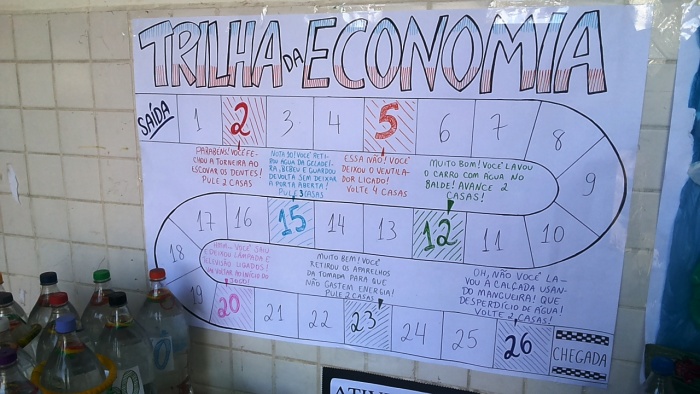 TRILHA DA ECONOMIA
SAÍDA
1
2
3
4
5
6
7
8
9
10
11
12
13
14
15
16
17
18
19
20
21
22
23
24
25
26
CHEGADA
PARABÉNS! VOCÊ FE-
CHOU A TORNEIRA AO
ESCOVAR OS DENTES!
PULE 2 CASAS
NOTA 10! VOCÊ RETI-
ROU ÁGUA DA GELADEI-
RA, BEBEU E GUARDOU
DE VOLTA SEM DEIXAR
A PORTA ABERTA!
PULE 3 CASAS
ESSA NÃO! VOCÊ
DEIXOU O VENTILA-
DOR LIGADO!
VOLTE 4 CASAS
MUITO BOM! VOCÊ LAVOU
O CARRO COM ÁGUA NO
BALDE! AVANCE 2
CASAS!
VOCÊ SAIU
E DEIXOU LÂMPADA E
TELEVISÃO LIGADOS!
VOLTAR AO INÍCIO DO
JOGO!
MUITO BEM! VOCÊ
RETIROU OS APARELHOS
DA TOMADA PARA QUE
NÃO GASTEM ENERGIA!
PULE 2 CASAS
OH, NÃO VOCÊ LA-
VOU A CALÇADA USAN-
DO MANGUEIRA! QUE
DESPERDÍCIO DE ÁGUA!
VOLTE 2 CASAS!